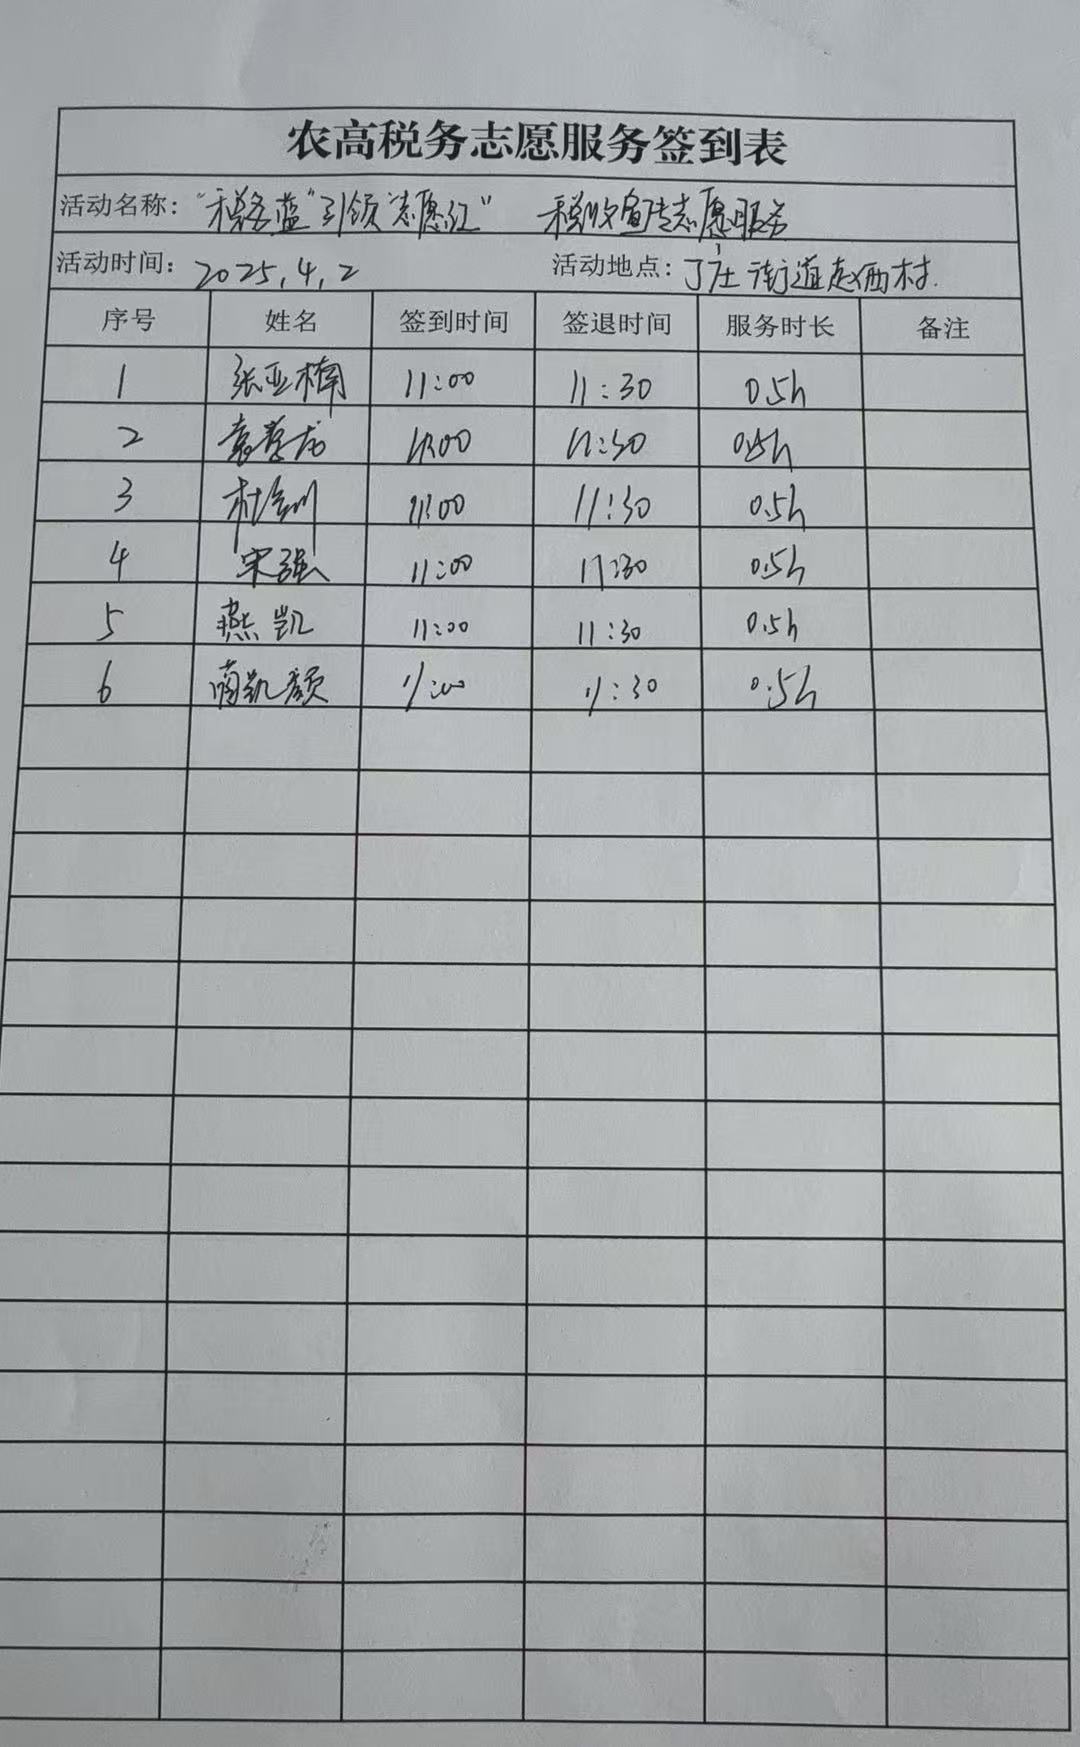 农高税务志愿服务签到表
活动名称："税务蓝"引领"志愿红" 税收宣传志愿服务
活动时间：2025.4.2 活动地点：丁庄街道赵西村.
序号 姓名 签到时间 签退时间 服务时长 备注
1 张亚楠 11:00 11:30 0.5h
2 11:00 11:30 0.5h
3 杜 11:00 11:30 0.5h
4 宋强 11:00 11:30 0.5h
5 燕凯 11:00 11:30 0.5h
6 凯 11:00 11:30 0.5h